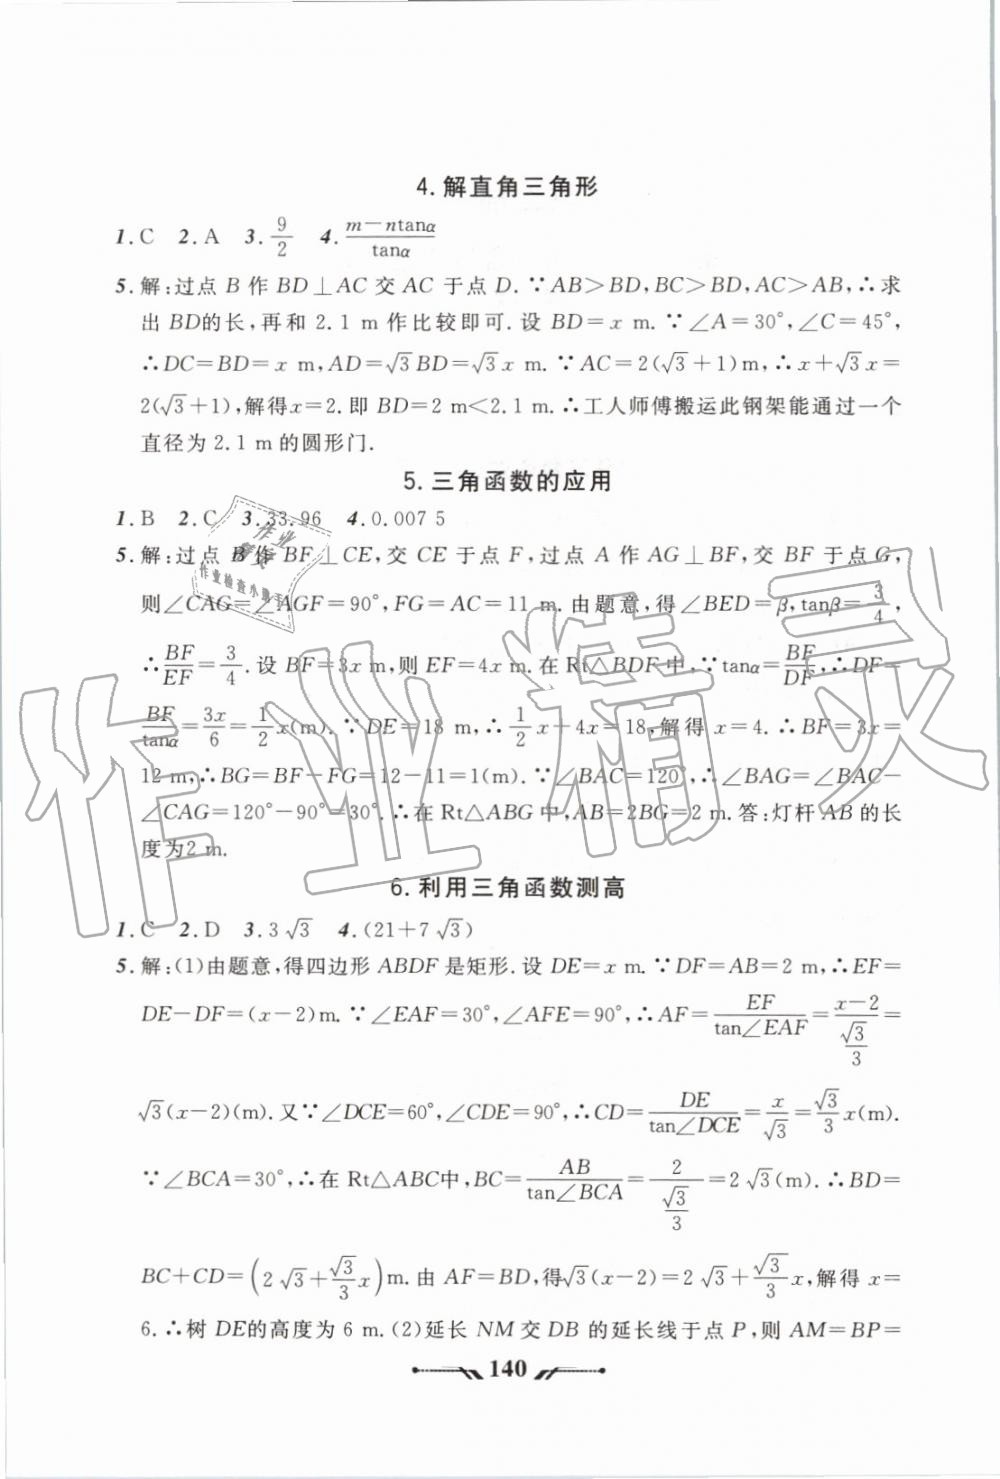 4.解直角三角形
1.C 2.A 3.9/2 4.(m－ntanα)/tanα
5.解:过点 B 作 BD⊥AC 交 AC 于点 D.∵AB>BD,BC>BD,AC>AB,∴求
出 BD的长,再和 2.1 m 作比较即可.设 BD=x m.∵∠A=30°,∠C=45°,
∴DC=BD=x m,AD=√3BD=√3x m.∵AC=2(√3+1)m,∴x+√3x=
2(√3+1),解得x=2.即 BD=2 m<2.1 m.∴工人师傅搬运此钢架能通过一个
直径为 2.1 m 的圆形门.
5.三角函数的应用
1.B 2.C 3.33.96 4.0.007 5
5.解:过点 B 作 BF⊥CE,交 CE 于点 F,过点 A 作 AG⊥BF,交 BF 于点 G,
则∠CAG=∠AGF=90°,FG=AC=11 m.由题意,得∠BED=β,tanβ=3/4,
∴BF/EF=3/4.设 BF=3x m,则 EF=4x m.在 Rt△BDF 中,∵tanα=BF/DF,∴DF=
BF/tanα=3x/6=1/2x(m).∵DE=18 m,∴1/2x+4x=18,解得 x=4.∴BF=3x=
12 m,∴BG=BF－FG=12－11=1(m).∵∠BAC=120°,∴∠BAG=∠BAC－
∠CAG=120°－90°=30°.∴在 Rt△ABG 中,AB=2BG=2 m.答:灯杆 AB 的长
度为2 m.
6.利用三角函数测高
1.C 2.D 3.3√3 4.(21+7√3)
5.解:(1)由题意,得四边形 ABDF 是矩形.设 DE=x m.∵DF=AB=2 m,∴EF=
DE－DF=(x－2)m.∵∠EAF=30°,∠AFE=90°,∴AF=EF/tan∠EAF=(x－2)/(√3/3)=
√3(x－2)(m).又∵∠DCE=60°,∠CDE=90°,∴CD=DE/tan∠DCE=x/√3=√3/3x(m).
∵∠BCA=30°,∴在 Rt△ABC中,BC=AB/tan∠BCA=2/(√3/3)=2√3(m).∴BD=
BC+CD=(2√3+√3/3x)m.由 AF=BD,得√3(x－2)=2√3+√3/3x,解得 x=
6.∴树 DE的高度为 6 m.(2)延长 NM 交 DB 的延长线于点 P,则 AM=BP=
140
作业精灵
作业检查小助手